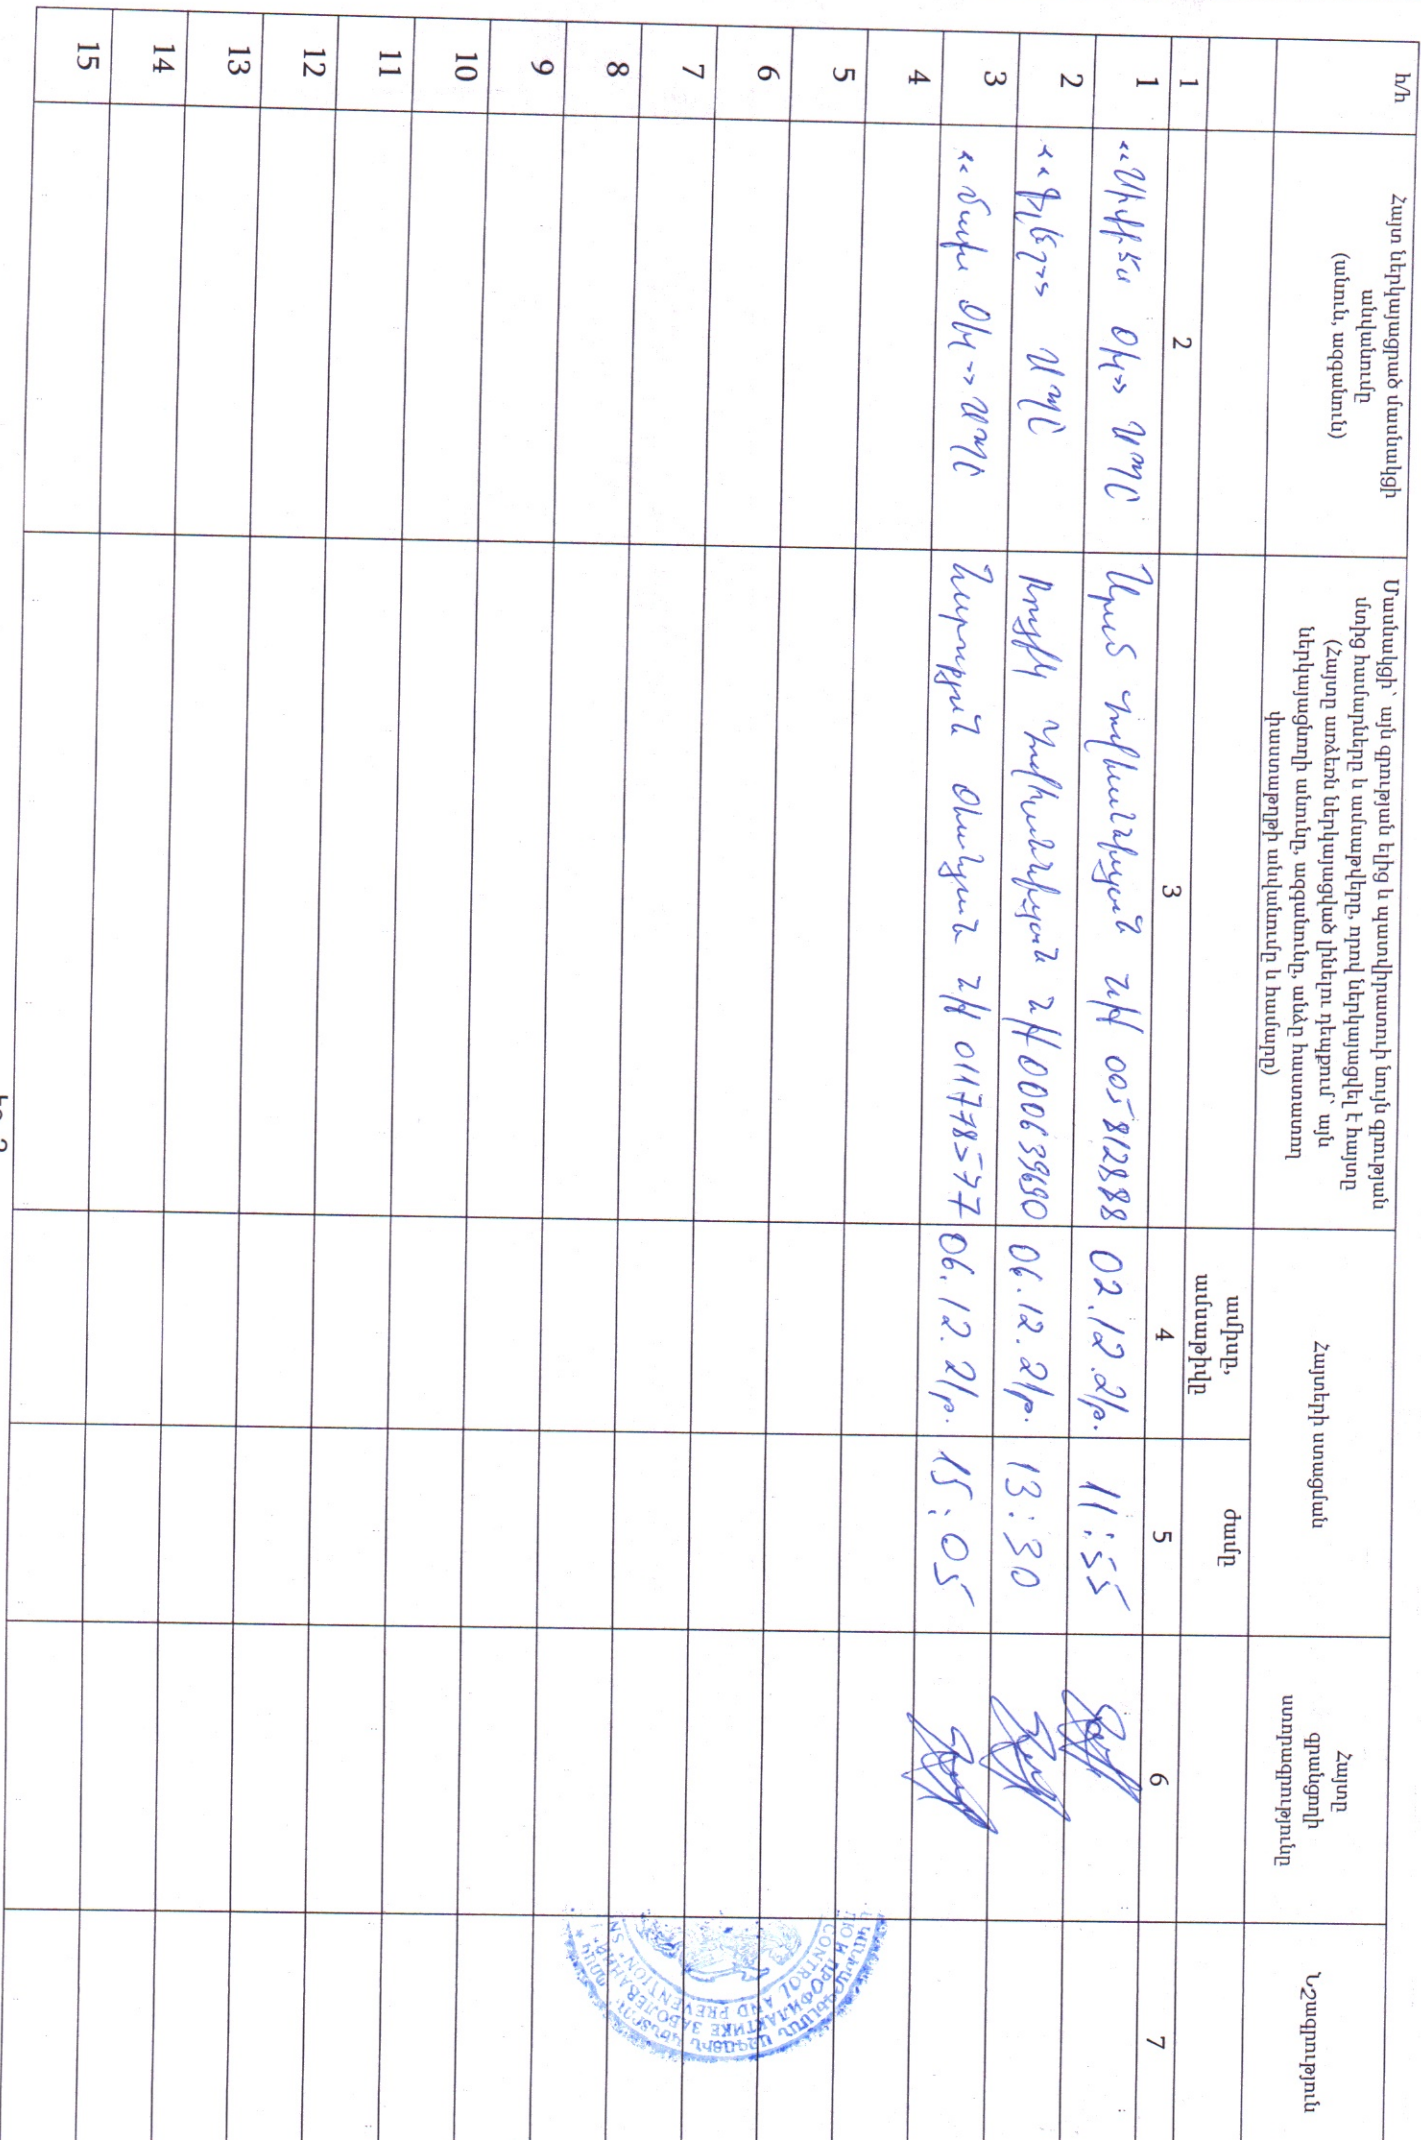 հ/հ
Հայտ ներկայացրած մասնակցի
անվանումը
(անուն, ազգանուն)
Մասնակցի՝ այն գրության ելից և պատվիրատուի նույն գրության
մտից համարները և ամսաթվերը, որով ներկայացվել է հայտը
(Հայտը առձեռն ներկայացված լինելու դեպքում՝ այն
ներկայացնողի անունը, ազգանունը, անձը հաստատող
փաստաթղթի անվանումը և համարը)
Հայտերի ստացման
ամիսը,
ամսաթիվը
ժամը
Հայտը
գրանցողի
ստորագրությունը
Նշագրություն
1 2 3 4 5 6 7
1 ՍՊԸ Արամ Հովհաննիսյան 005812888 02.12.21թ. 11:55
2 ՍՊԸ Հովհաննիսյան 000639690 06.12.21թ. 13:30
3 ՍՊԸ Հարություն 011778577 06.12.21թ. 15:05
4
5
6
7
8
9
10
11
12
13
14
15
CONTROL AND PREVENTION" SN
И ПРОФИЛАКТИКЕ ЗАБОЛЕВАНИЙ"